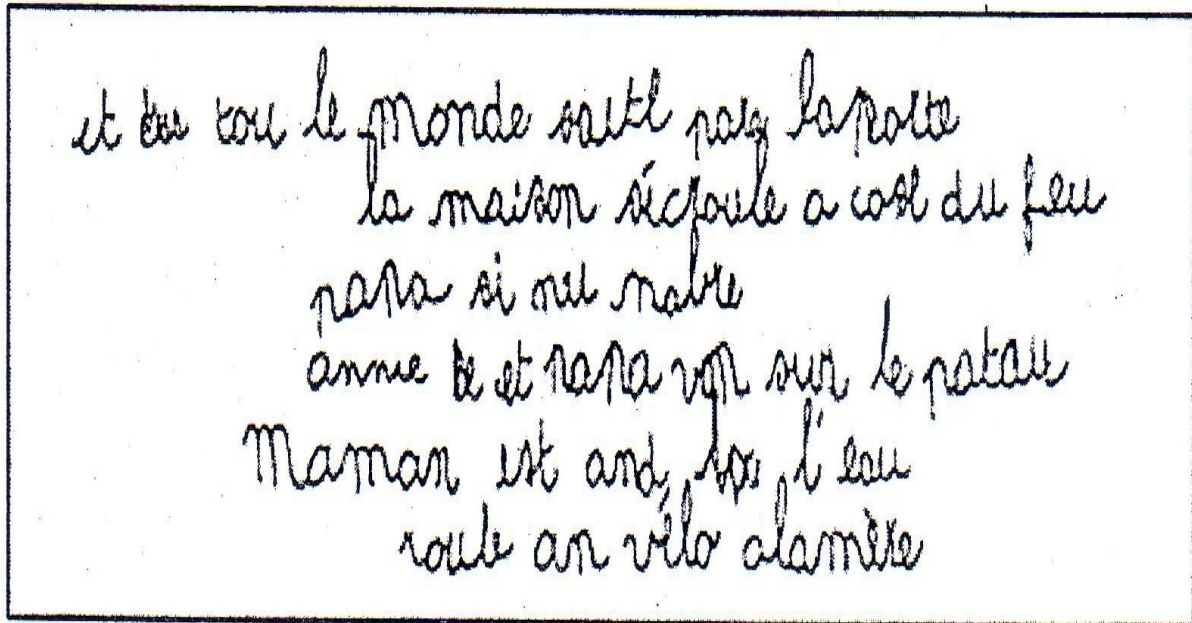 et tou le Monde saute par laporte
la maison sécroule a cosé du feu
papa si nu nabre
annie et papa von sur le patau
Maman est and l'eau
roule an vélo alamère